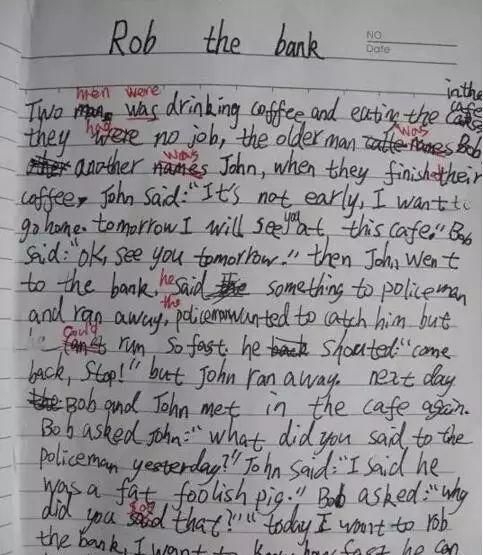 Rob the bank
NO
Date
men were
in the
Two man was drinking coffee and eating the cafe
had was
they were no job, the older man names Bob
was
another names John, when they finished their
coffee, John said: "It's not early, I want to
go home. tomorrow I will see you at this cafe." Bob
said: "ok, see you tomorrow." then John went
to the bank. he said something to policeman
and ran away, the policeman wanted to catch him but
could
he can't run so fast. he back shouted: "come
back, stop!" but John ran away. next day
the Bob and John met in the cafe again.
Bob asked John: "what did you said to the
policeman yesterday?" John said: "I said he
was a fat foolish pig." Bob asked: "why
say
did you said that?" "today I want to rob
the bank, I want to know how fast he can